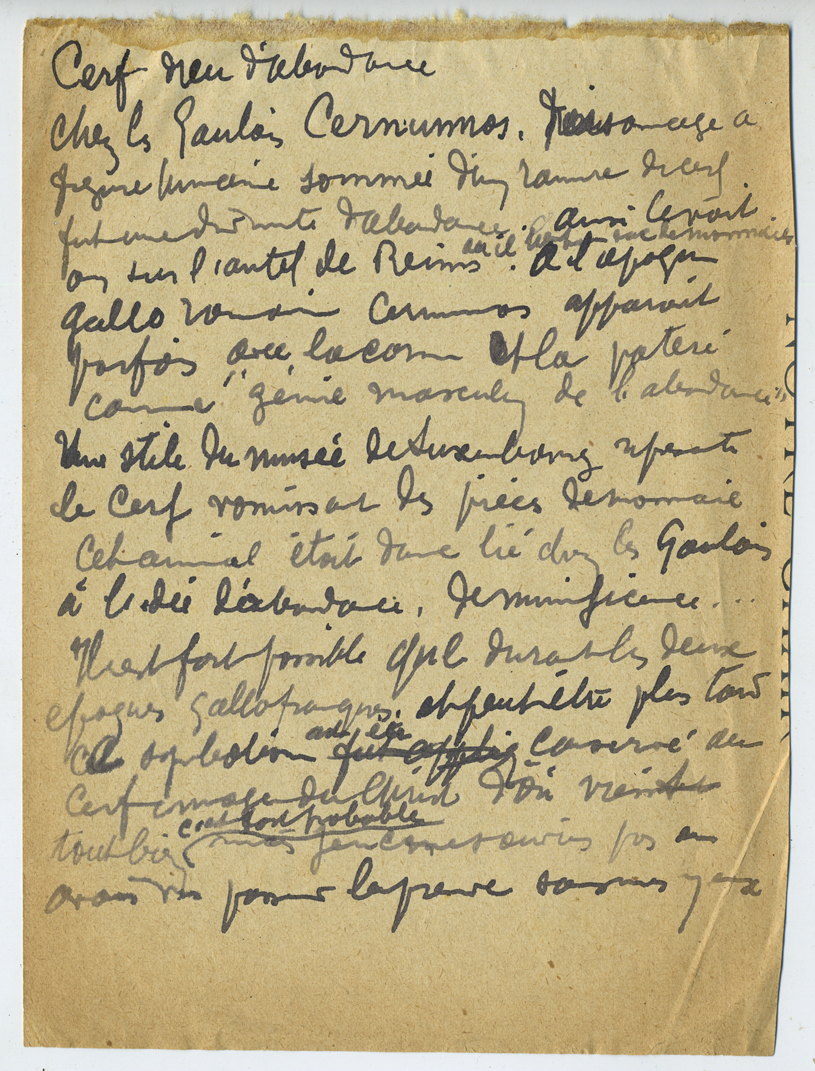 Cerf dieu d'abondance
chez les Gaulois Cernunnos. Personnage a
figure humaine sommée d'une ramure de cerf
fut une divinité d'abondance. ainsi le voit
où il tient sac de monnaies
on sur l'autel de Reims. A l'époque
gallo romaine Cernunnos apparait
parfois avec la corne et la patere
comme "génie masculin de l'abondance"
Une stèle du musée de Luxembourg represente
le Cerf vomissant des pièces de monnaie
Cet animal était donc lié chez les Gaulois
à l'idée d'abondance, de munificence...
Il est fort possible que durant les deux
epoques gallofranques, et peut être plus tard
ce a été
fut appliq conservé au
Cerf image du Christ d'où vient
c'est fort probable
tout bien mais je ne me souviens pas en
avoir vu passer la preuve sous mes yeux